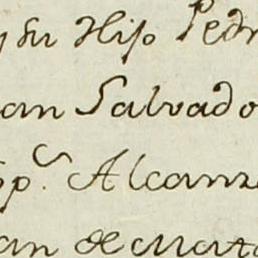 y su Hijo Pedr
an Salvado
p.º Alcanz
an de Mata